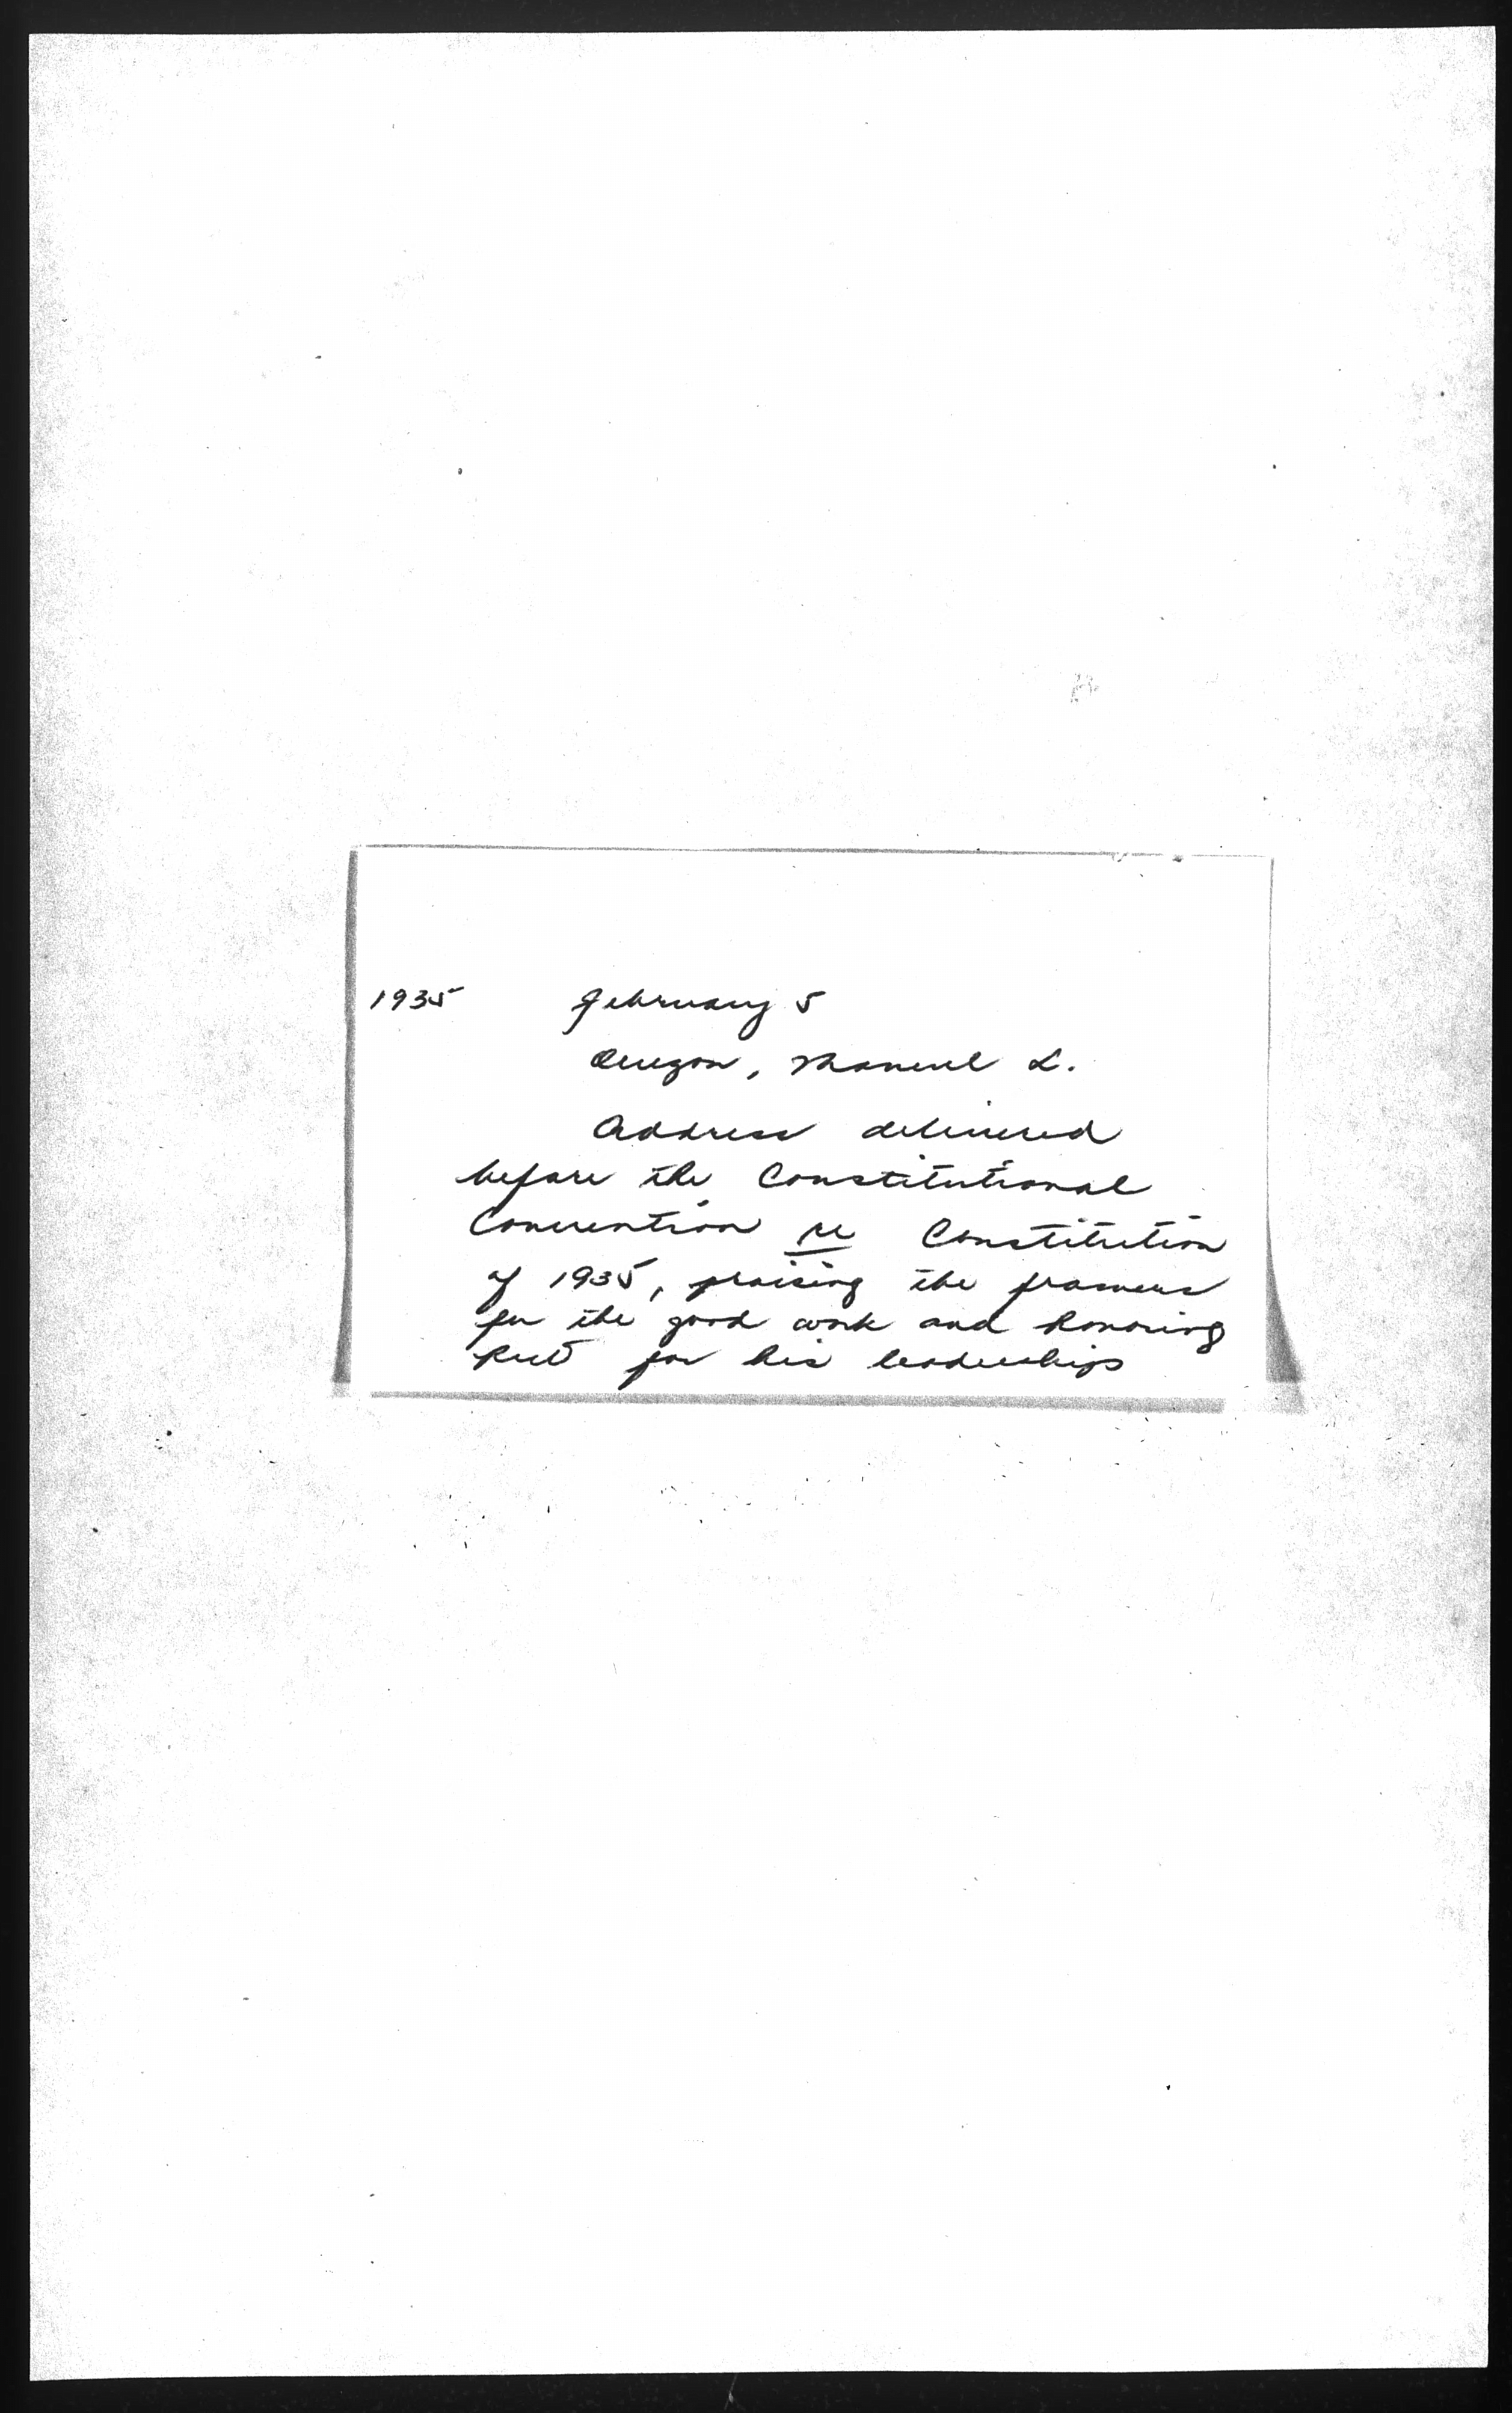 1935 February 5
Quezon, Manuel L.
Address delivered
before the Constitutional
Convention re Constitution
of 1935, praising the framers
for the good work and honoring
for his leadership